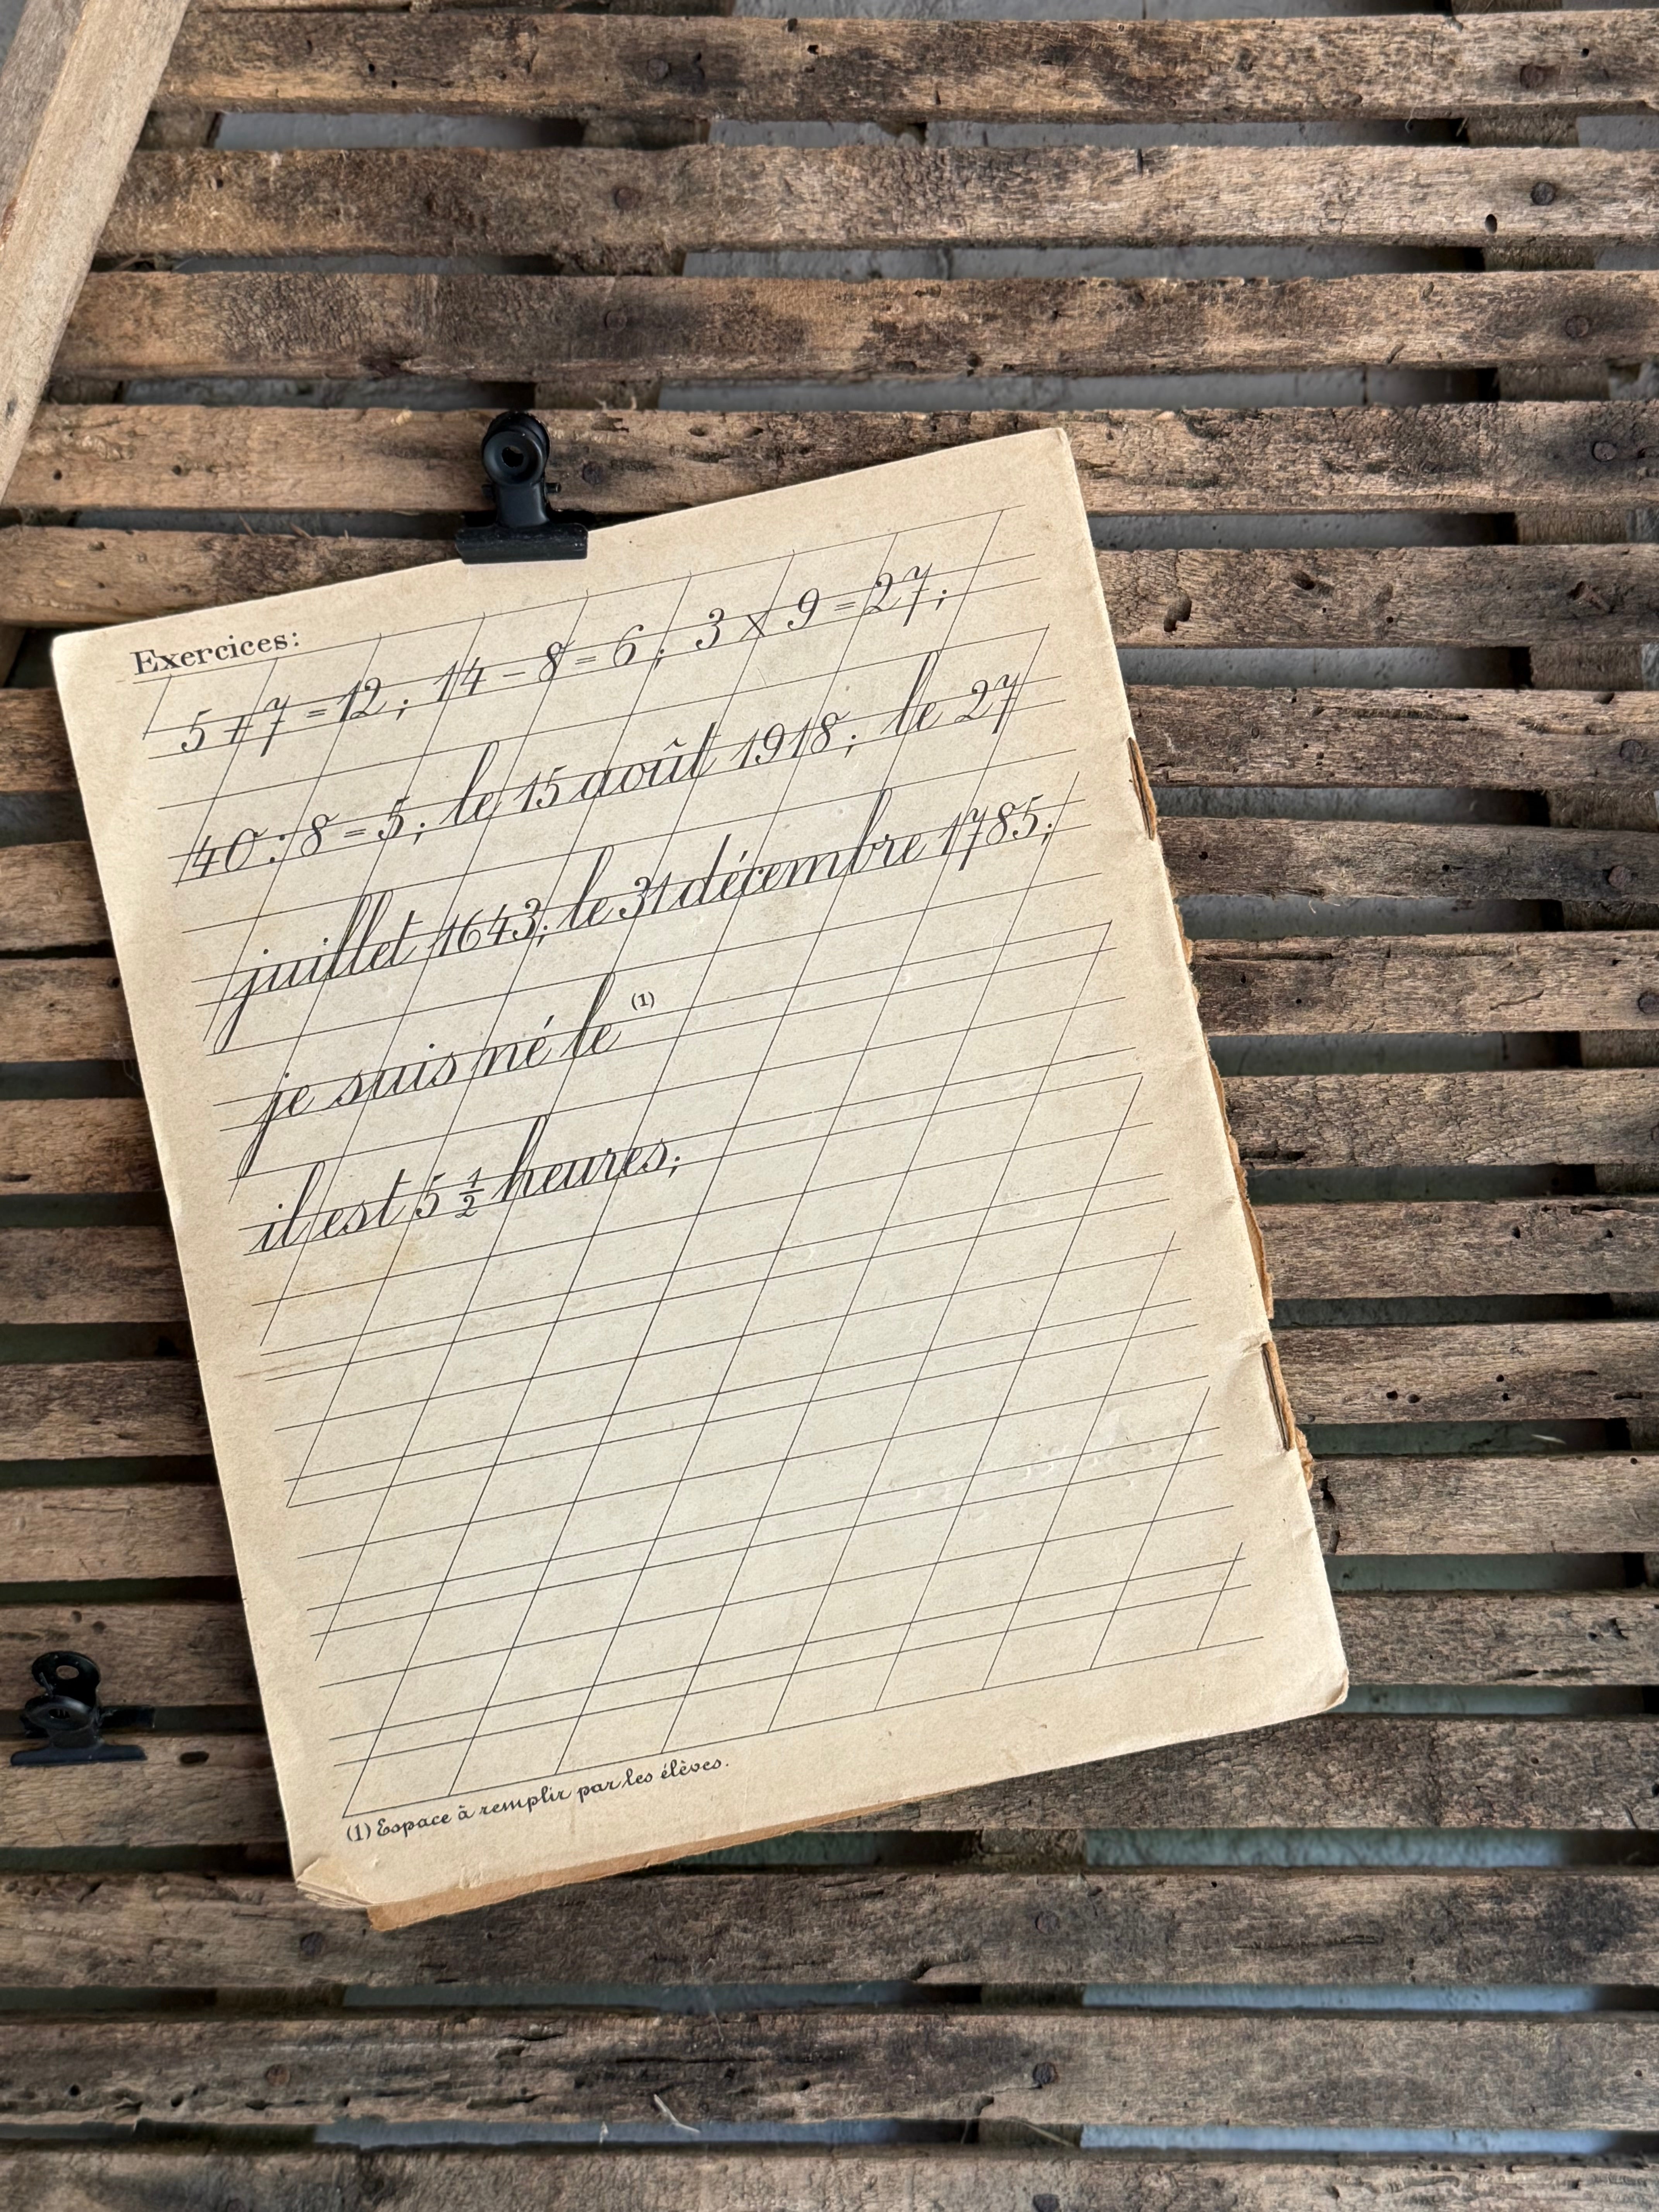 Exercices:
5 + 7 = 12 ; 14 - 8 = 6 ; 3 x 9 = 27 ;
40 : 8 = 5 ; le 15 août 1918 ; le 27
juillet 1643 ; le 31 décembre 1785 ;
je suis né le (1)
il est 5 1/2 heures ;
(1) Espace à remplir par les élèves.